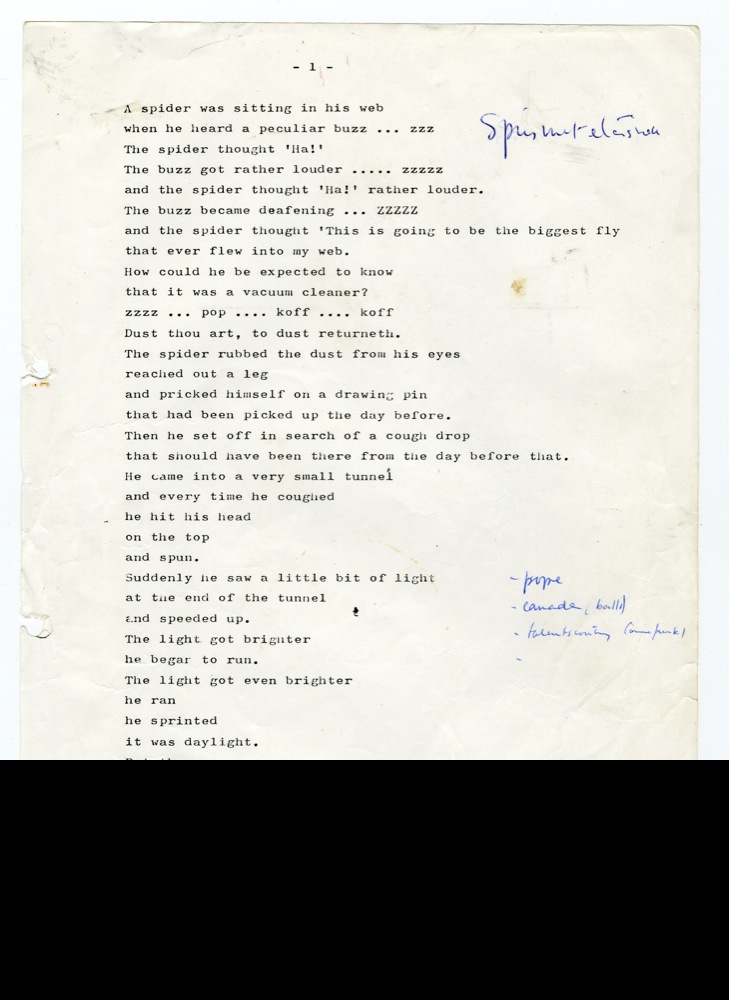 - 1 -
A spider was sitting in his web
when he heard a peculiar buzz ... zzz
The spider thought 'Ha!'
The buzz got rather louder ..... zzzzz
and the spider thought 'Ha!' rather louder.
The buzz became deafening ... ZZZZZ
and the spider thought 'This is going to be the biggest fly
that ever flew into my web.
How could he be expected to know
that it was a vacuum cleaner?
zzzz ... pop .... koff .... koff
Dust thou art, to dust returneth.
The spider rubbed the dust from his eyes
reached out a leg
and pricked himself on a drawing pin
that had been picked up the day before.
Then he set off in search of a cough drop
that should have been there from the day before that.
He came into a very small tunnel
and every time he coughed
he hit his head
on the top
and spun.
Suddenly he saw a little bit of light
- pope
at the end of the tunnel
- canada
and speeded up.
The light got brighter
he began to run.
The light got even brighter
he ran
he sprinted
it was daylight.